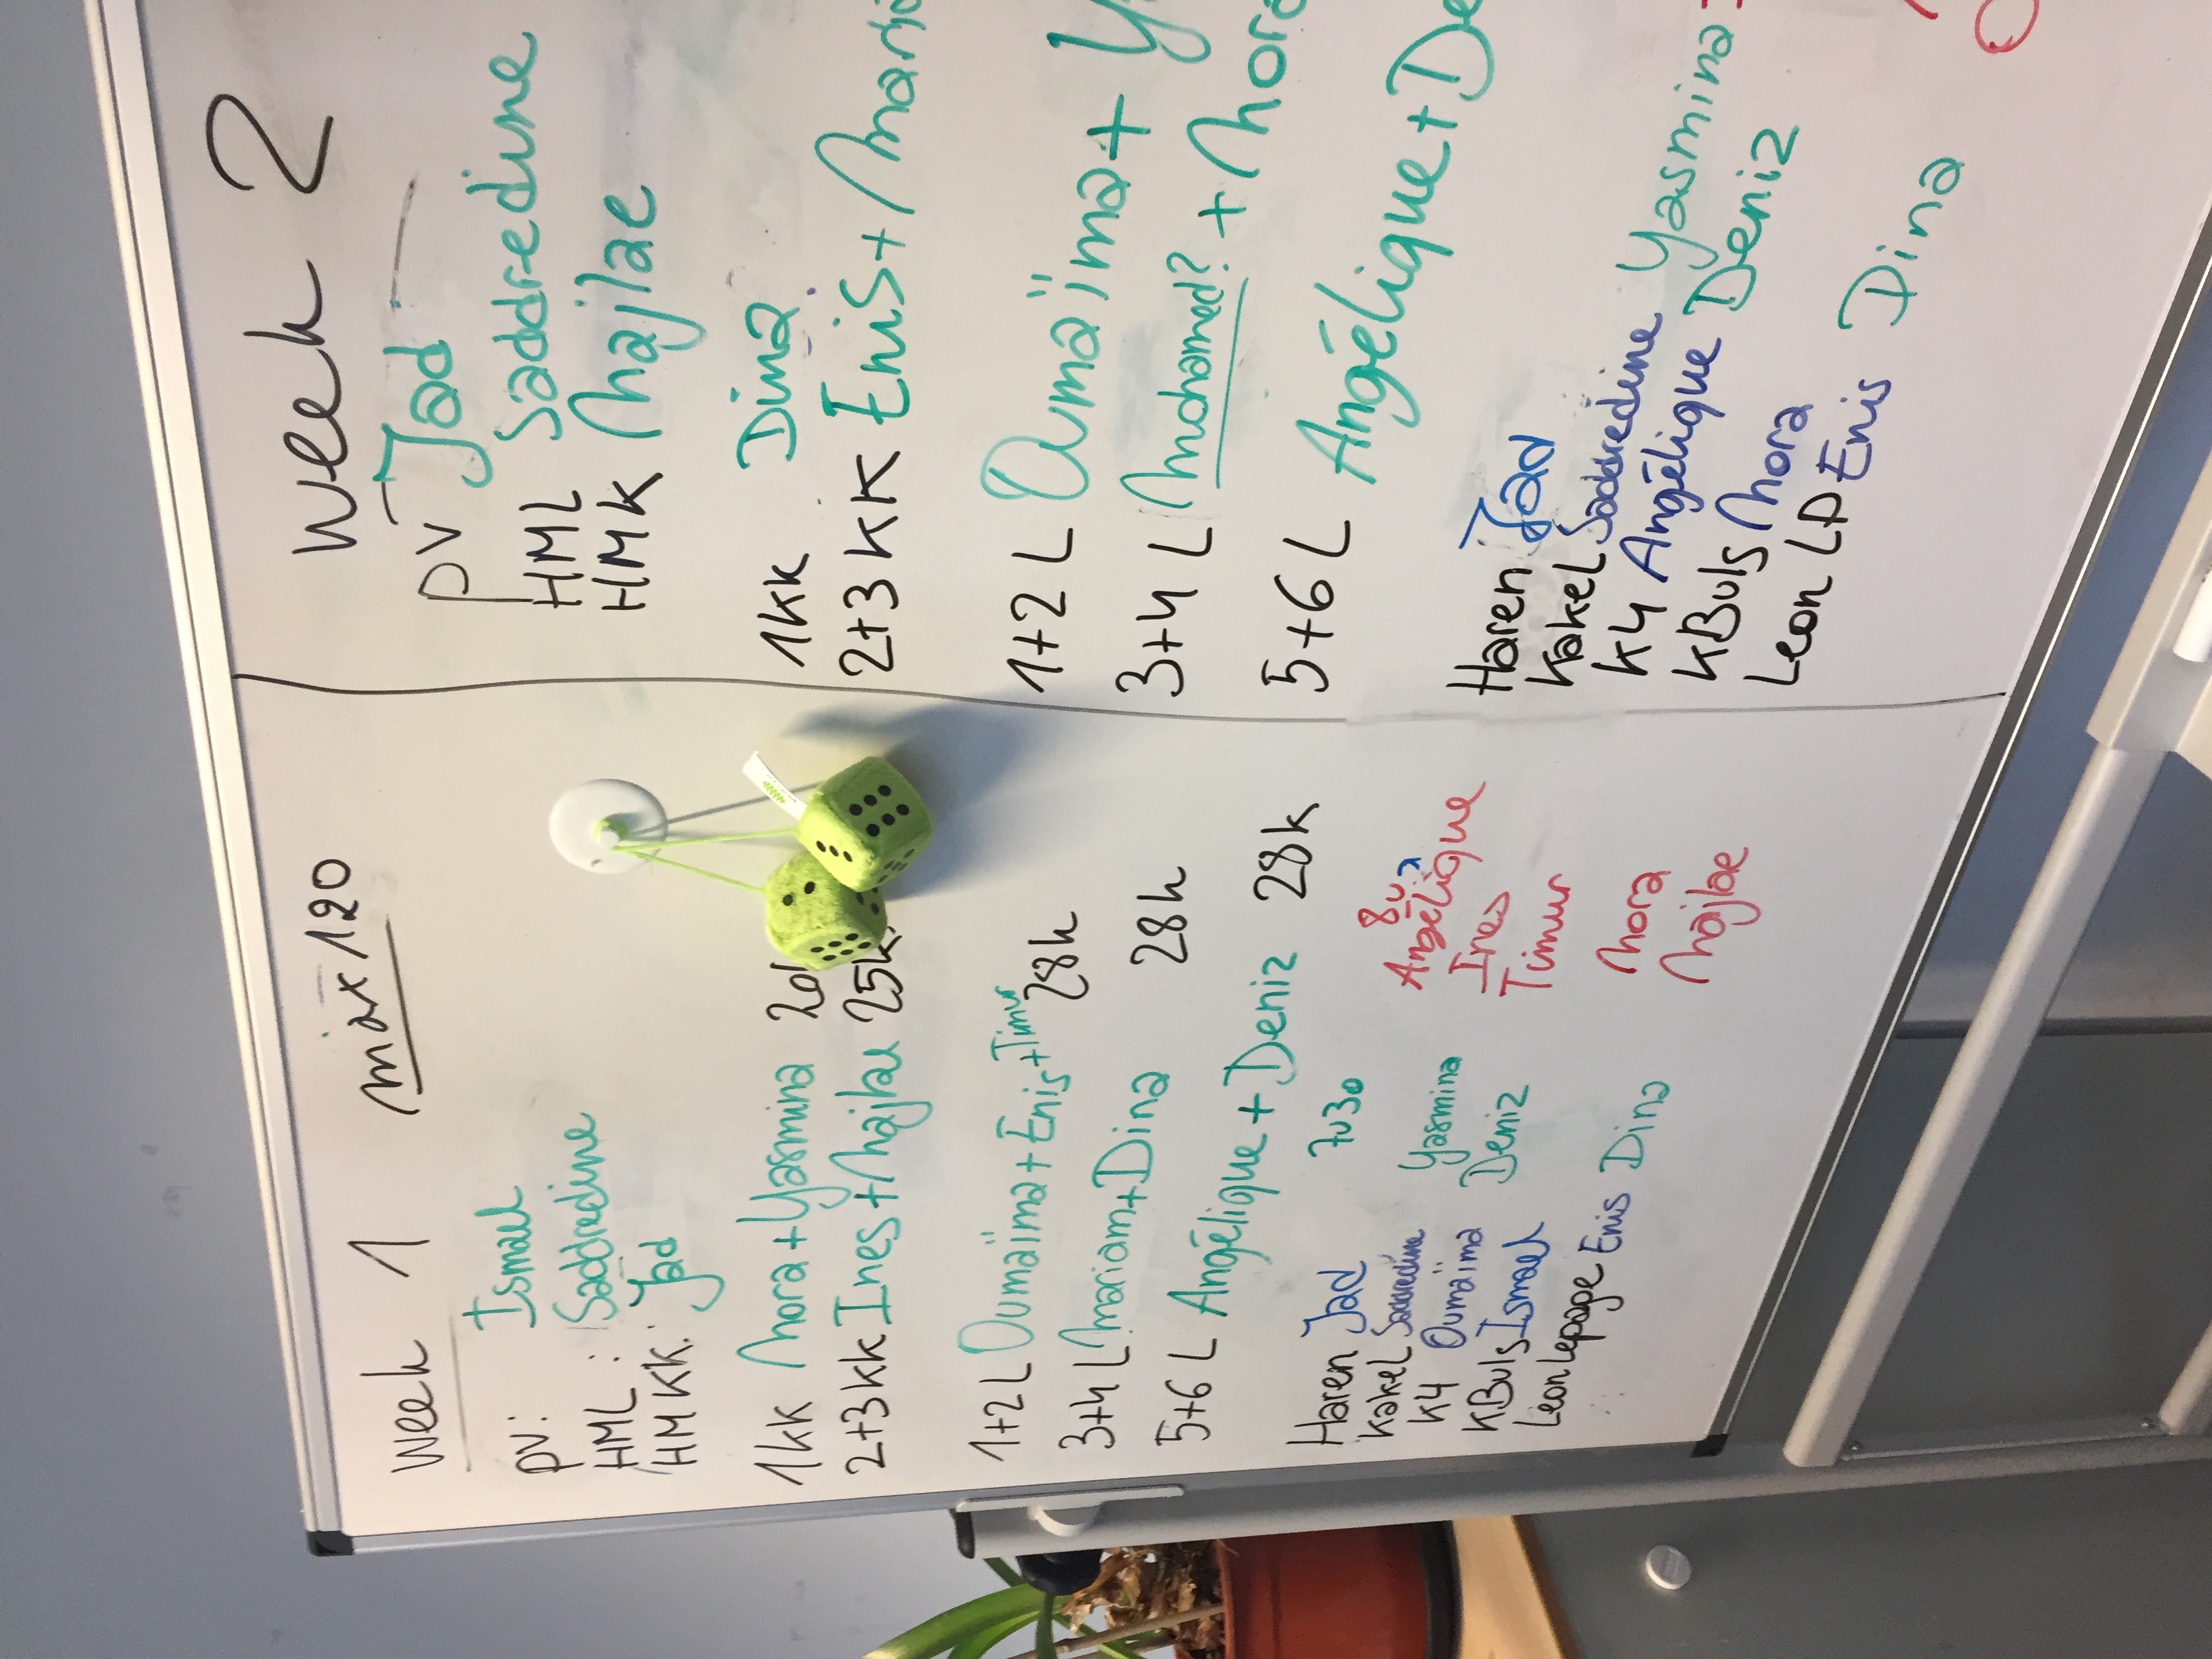 week 1 max 120
PV: Ismael
HML: Saddredine
HMKK: Jad
1kk Nora + Yasmina
2+3kk Ines + Najlae 25k
1+2 L Oumaïma + Enis + Timur 28k
3+4 L Mariam + Dina 28k
5+6 L Angélique + Deniz 28k
7u30 8u
Haren Jad Angélique
Kakel Saddredine Yasmina Ines
K4 Oumaïma Deniz Timur
KBuls Ismael
Leon Lepage Enis Dina Nora
Najlae
week 2
PV Jad
HML Saddredine
HMK Najlae
1kk Dina
2+3 KK Enis +
1+2 L Oumaïma +
3+4 L Mohamed? +
5+6 L Angélique +
Haren Jad
Kakel Saddredine Yasmina
K4 Angélique Deniz
KBuls Nora
Leon LP Enis Dina